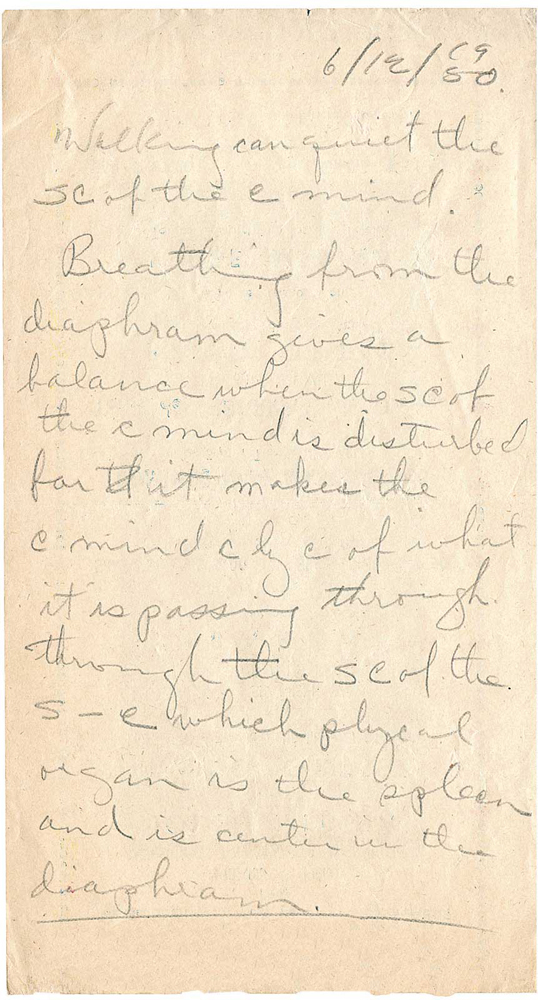 6/12/19
50.
Walking can quiet the
sc of the c mind.
Breathing from the
diaphram gives a
balance when the sc of
the c mind is disturbed
for it makes the
c mind cly c of what
it is passing through.
through the sc of the
s-c which phycal
organ is the spleen
and is center in the
diaphram.